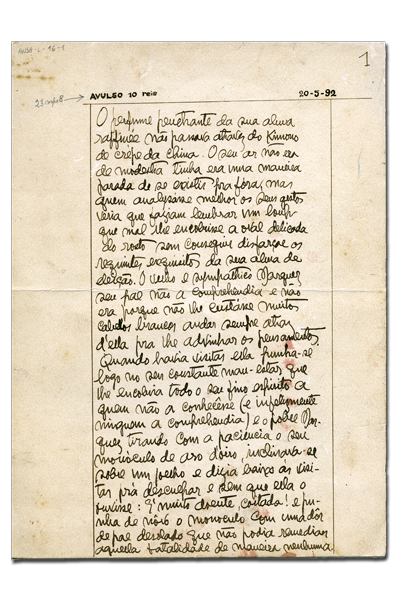 ANSA-L-16-1
1
23x16,8 →
AVULSO 10 reis 20-5-92
O perfume penetrante da sua alma
raffinée não passava atravez do Kimono
de crépe da China. O seu ar não era
de modestia tinha era uma maneira
parada de se existir pra fóra, mas
quem analysásse melhor os seus gestos
veria que faziam lembrar um loup
que mal lhe encobrisse a oval delicada
do rosto sem conseguir disfarçar os
requintes exquisitos da sua alma de
eleição. O velho e sympathico Marquez
seu pae não a comprehendia e não
era porque não lhe custásse muitos
cabellos brancos andar sempre atraz
d'ella pra lhe advinhar os pensamentos.
Quando havia visitas ella punha-se
logo no seu constante mau-estar que
lhe encobria todo o seu fino espirito a
quem não a conhecêsse (e infelizmente
ninguem a comprehendia) e o pobre Mar-
quez tirando com a paciencia o seu
monoculo de aro d'oiro, inclinava-se
sobre um joelho e dizia baixo ás visi-
tas prá desculpar e sem que ella o
ouvisse: É muito doente, coitada! e pu-
nha de nôvo o monoculo com uma dôr
de pae desolado que não podia remediar
aquella fatalidade de maneira nenhuma